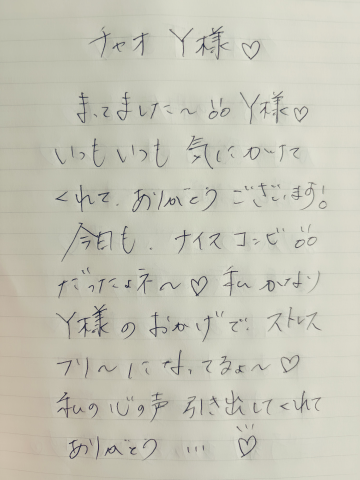 チャオ Y様♡
まってました〜!! Y様♡
いつもいつも 気にかけて
くれて、ありがとう ございます!
今日も、ナイスコンビ!!
だったよネ〜♡ 私かなり
Y様のおかげで、ストレス
フリ〜になってるよ〜♡
私の心の声 引き出してくれて
ありがとう …♡